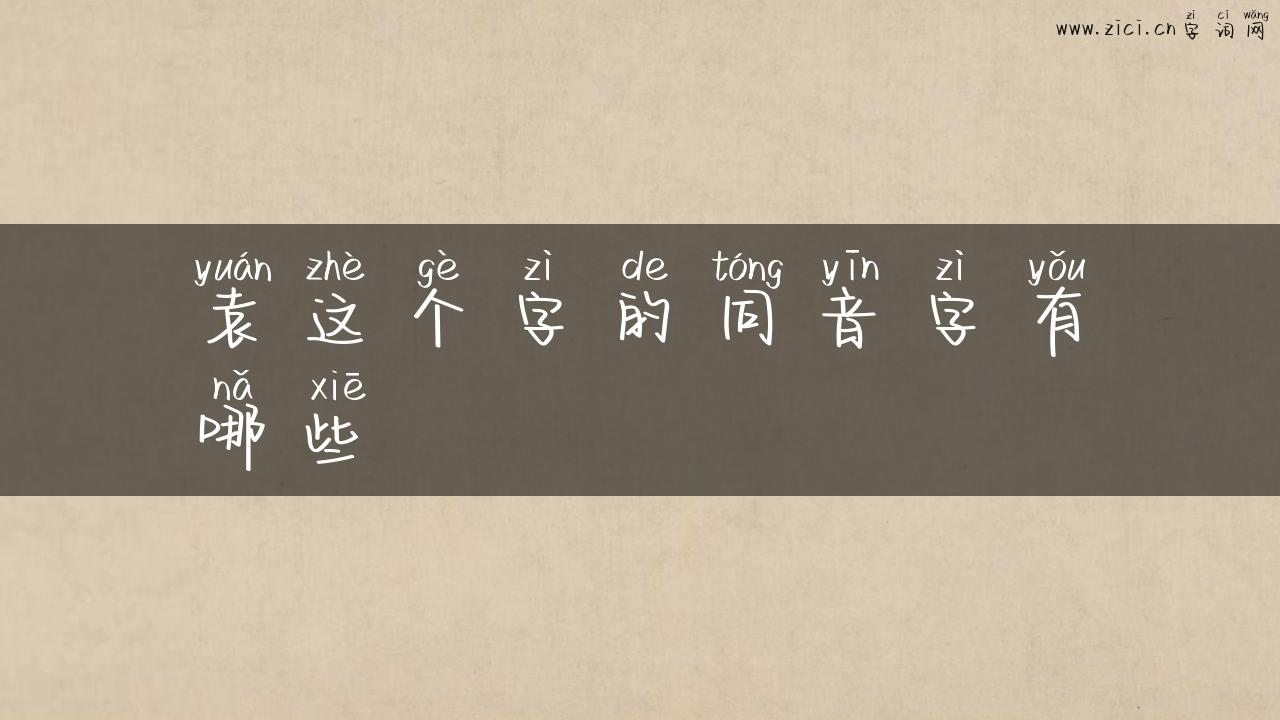 zì cí wǎng
www.zici.cn 字 词 网
yuán zhè gè zì de tóng yīn zì yǒu
袁 这 个 字 的 同 音 字 有
nǎ xiē
哪 些